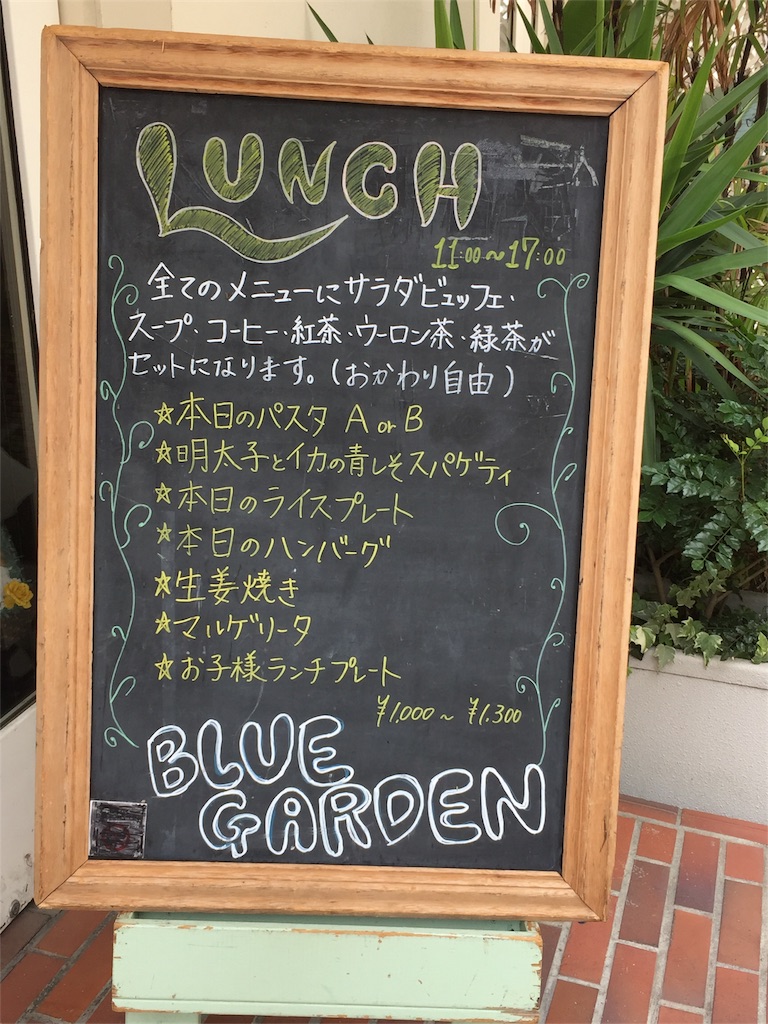 LUNCH
11:00〜17:00
全てのメニューにサラダビュッフェ・
スープ・コーヒー・紅茶・ウーロン茶・緑茶が
セットになります。(おかわり自由)
☆本日のパスタ A or B
☆明太子とイカの青しそスパゲティ
☆本日のライスプレート
☆本日のハンバーグ
☆生姜焼き
☆マルゲリータ
☆お子様ランチプレート
¥1.000〜 ¥1.300
BLUE
GARDEN